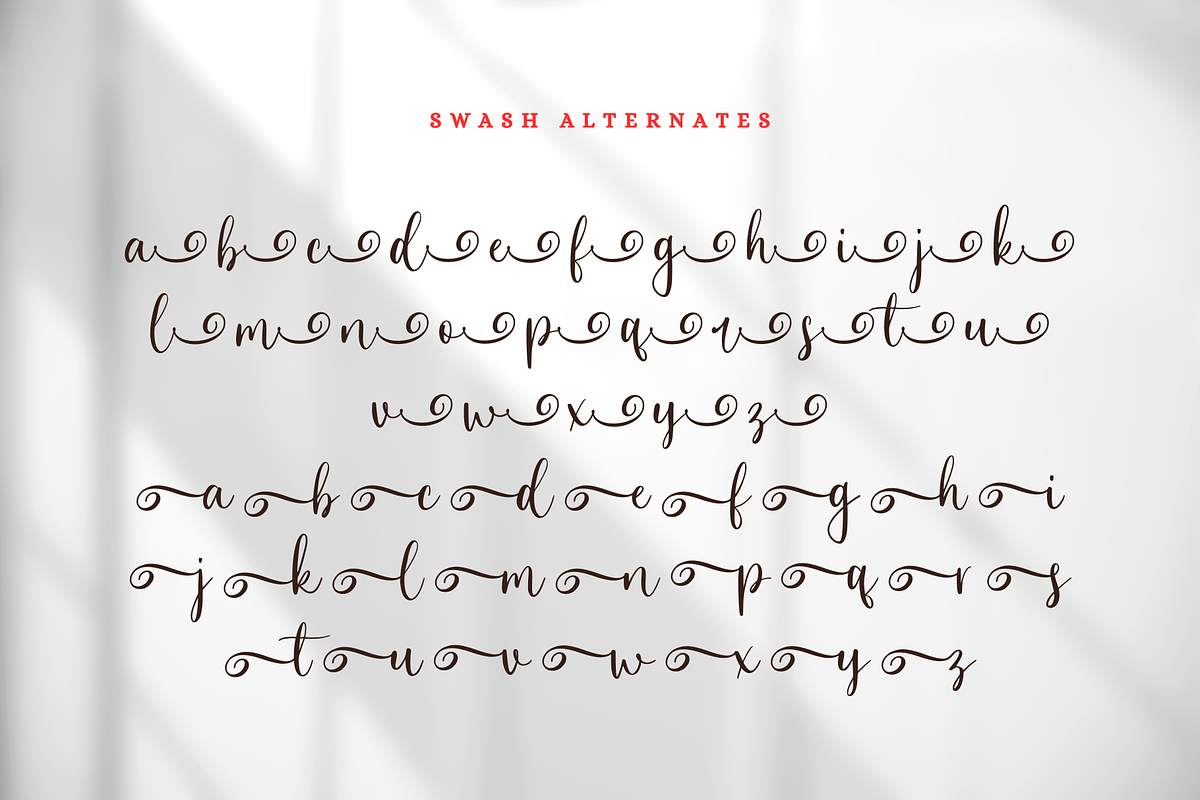 SWASH ALTERNATES
a b c d e f g h i j k
l m n o p q r s t u
v w x y z
a b c d e f g h i
j k l m n p q r s
t u v w x y z